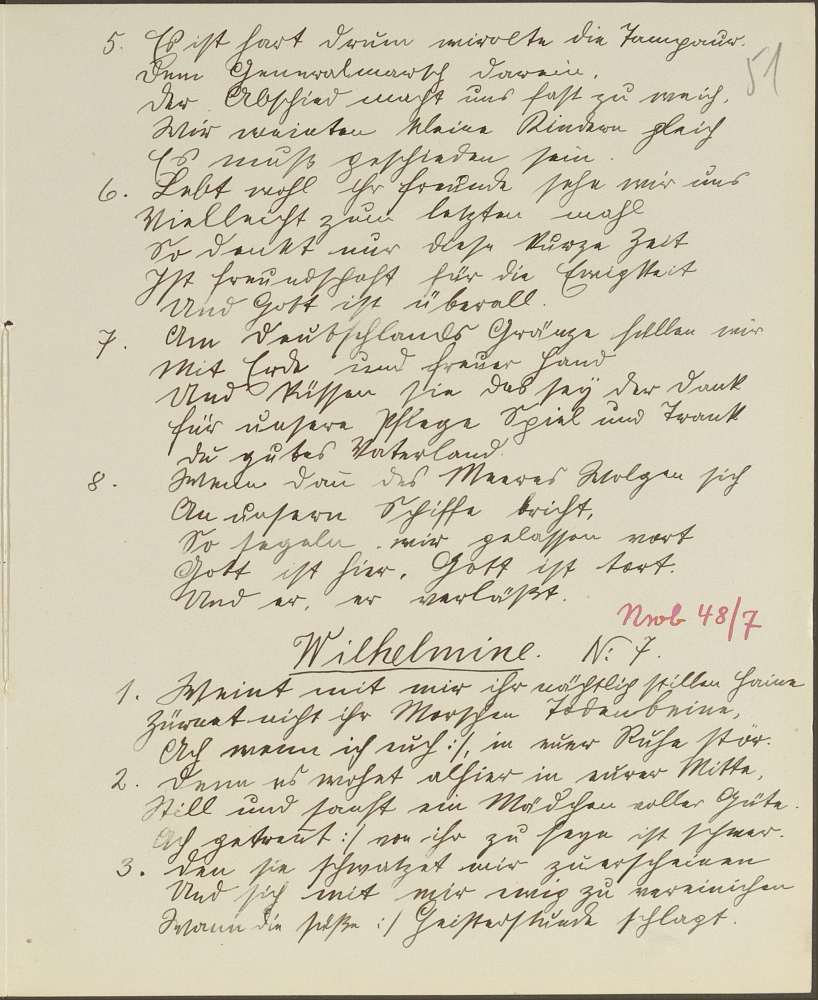 5. Es ist hart drum wirolte die Tampaur.
51
Dem Generalmarsch darein.
Der Abschied macht uns fast zu weich,
Wir weinten kleine Kindern gleich
Es muß geschieden sein.
6. Lebt wohl ihr freunde sehn wir uns
Vielleicht zum letzten mahl
So denkt nur diese kurze Zeit
Ist freundschaft für die Ewigkeit
Und Gott ist überall.
7. Am Deutschlands Gränze füllen wir
Mit Erde und freuer Hand
Und küssen sie das seÿ der Dank
für unsere Pflege Spiel und Trank
du gutes Vaterland.
8. Wenn dañ des Meeres Wolgen sich
An unsern Schiffe bricht,
So segeln wir gelassen vort
Gott ist hier, Gott ist tort.
Und er, er verläßt.
Nwb 48/7
Wilhelmine. N: 7.
1. Weint mit mir ihr nächtlich stillen Haine
Zürnet nicht ihr Morschen Todenbeine,
Ach wenn ich euch :/, in euer Ruhe stör.
2. Denn es wohet alhier in eurer Mitte,
Still und sanft ein Mädchen voller Güte.
Ach getrent :/ von ihr zu seyn ist schwer.
3. Den sie schwatzet mir zu erscheinen
Und sich mit mir ewig zu vereinichen
Wann die süße :/ Geisterstunde schlagt.